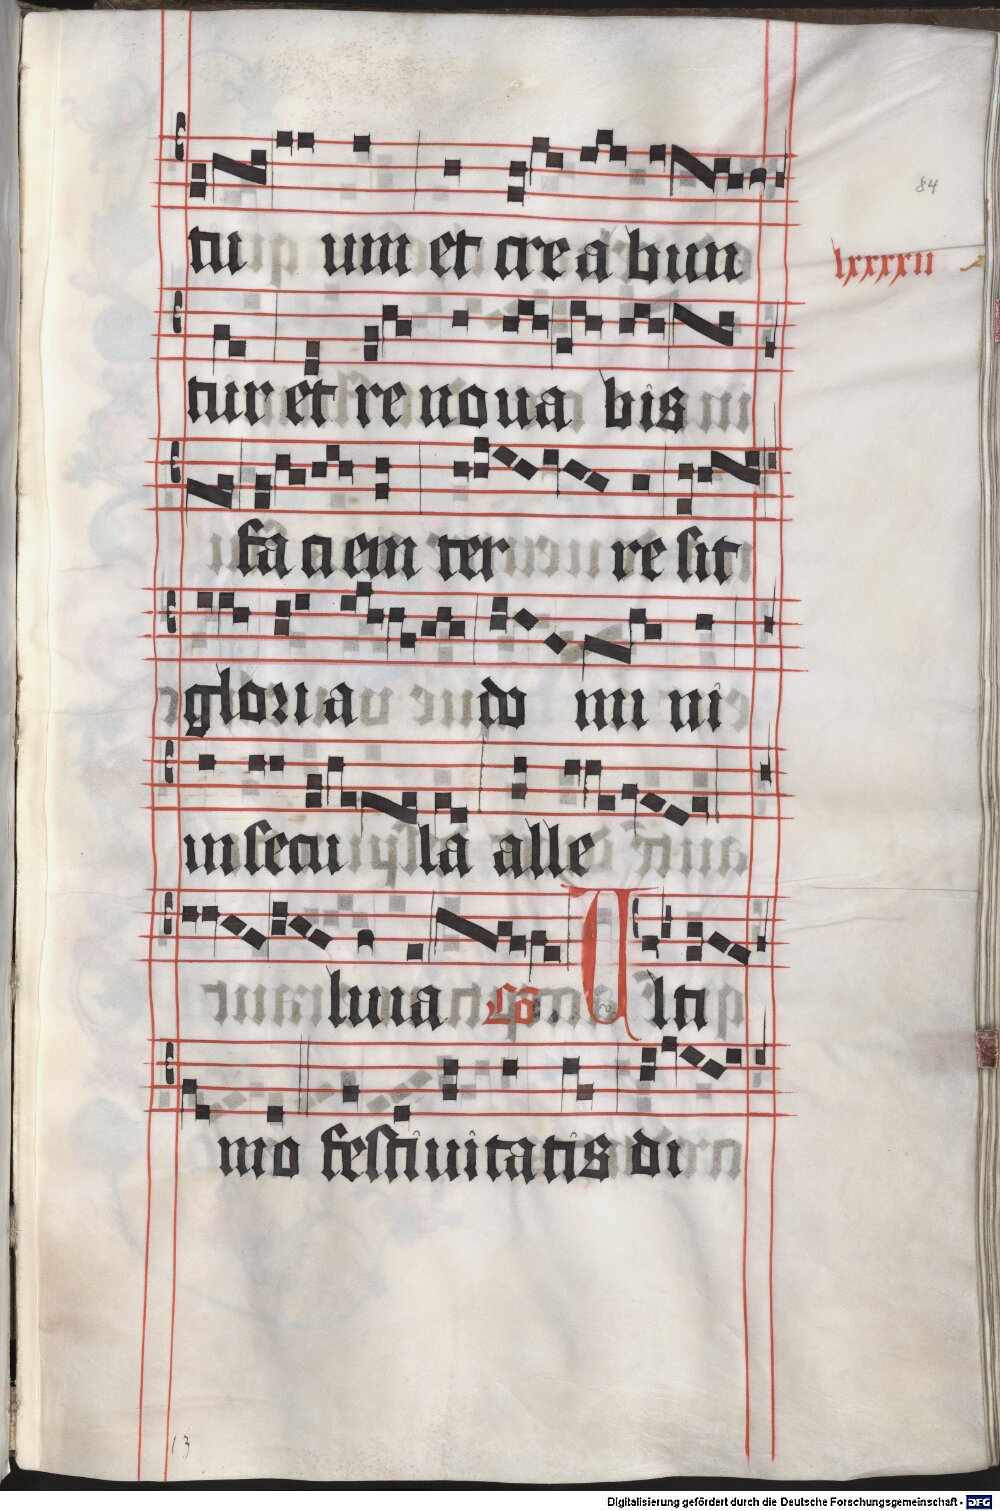 84
tu um et cre a bun
lxxxxii
tur et re no ua bis
fa ci em ter re sit
gloria do mi ni
in secu la alle
luia Co. Ulti
mo festiuitatis di
13
Digitalisierung gefördert durch die Deutsche Forschungsgemeinschaft - DFG